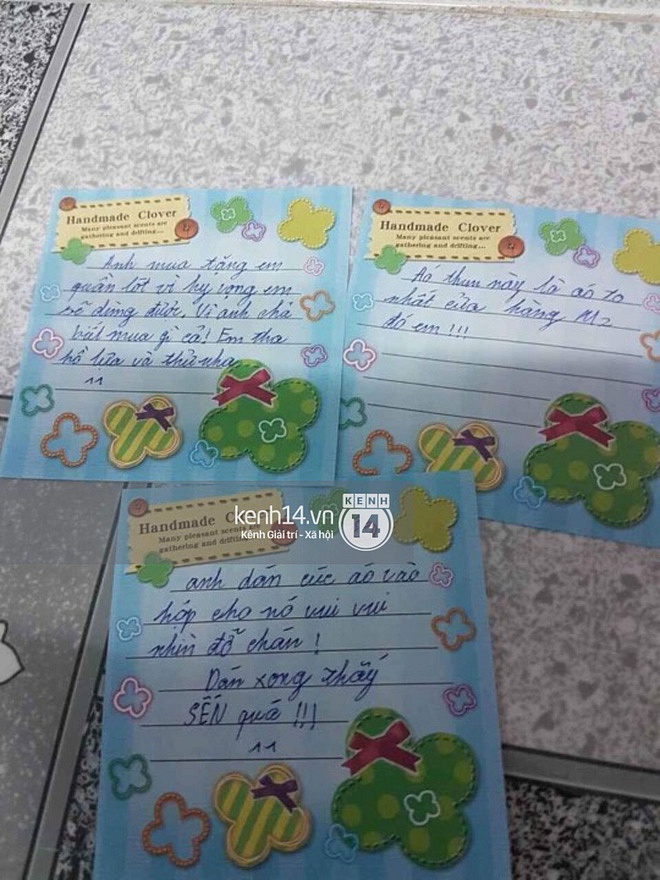 Handmade Clover
Many pleasant scents are
gathering and drifting...
Anh mua tặng em
quần lót vì hy vọng em
sẽ dùng được. Vì anh chả
biết mua gì cả! Em tha
hồ lựa và thử nha
^^
Handmade Clover
Many pleasant scents are
gathering and drifting...
Áo thun này là áo to
nhất cửa hàng
đó em !!!
Handmade
Many pleasant scents are
gathering and drifting...
kenh14.vn
Kênh Giải trí - Xã hội
KENH
14
anh dán cúc áo vào
hộp cho nó vui vui
nhìn đỡ chán !
Dán xong thấy
SẾN quá !!!
^^